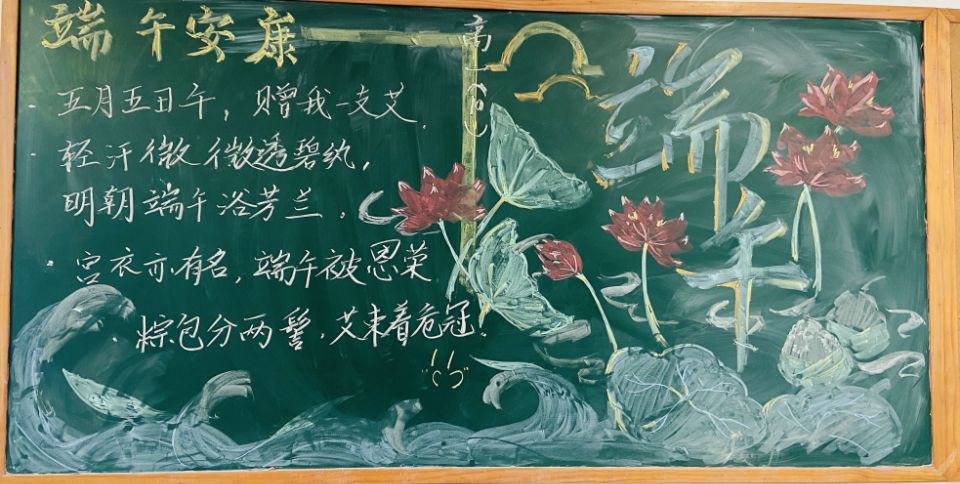 端午安康
五月五日午，赠我一支艾.
轻汗微微透碧纨，
明朝端午浴芳兰。
宫衣亦有名，端午被恩荣
粽包分两髻，艾束着危冠.
端午